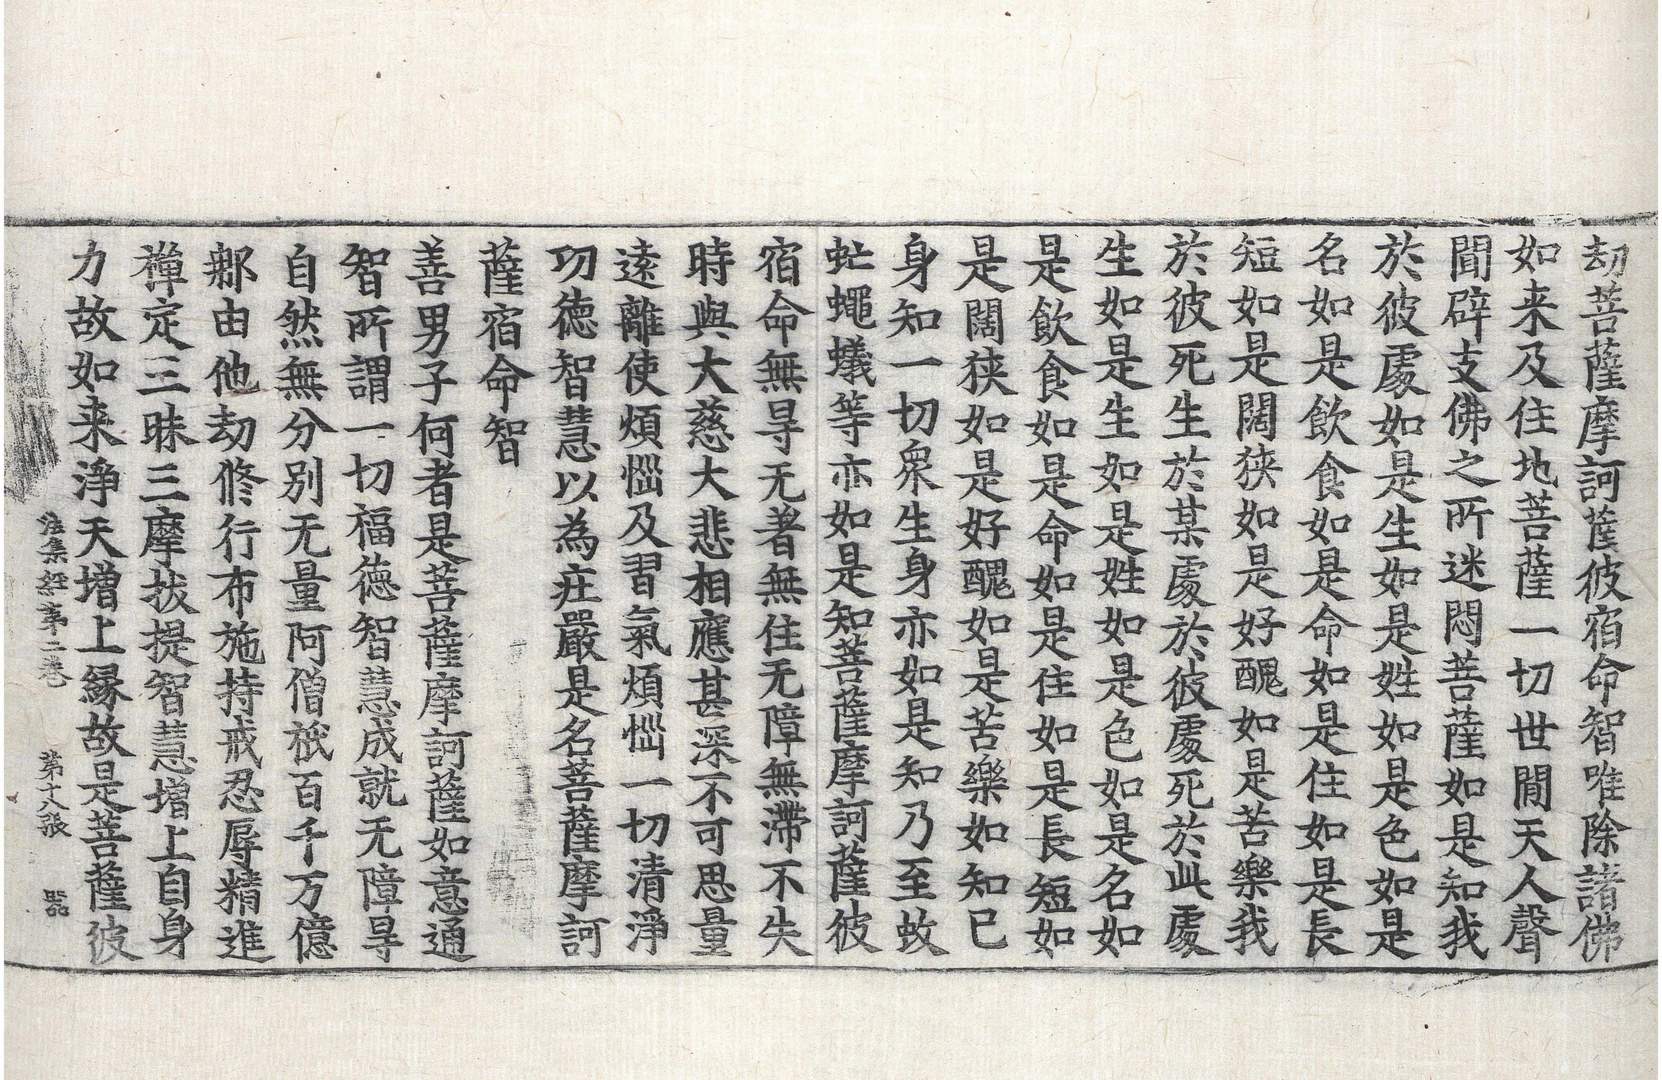 劫菩薩摩訶薩彼宿命智唯除諸佛
如来及住地菩薩一切世間天人聲
聞辟支佛之所迷悶菩薩如是知我
於彼處如是生如是姓如是色如是
名如是飲食如是命如是住如是長
短如是闊狹如是好醜如是苦樂我
於彼死生於某處於彼處死於此處
生如是生如是姓如是色如是名如
是飲食如是命如是住如是長短如
是闊狹如是好醜如是苦樂如知已
身知一切衆生身亦如是知乃至蚊
虻蠅蟻等亦如是知菩薩摩訶薩彼
宿命無㝵无著無住无障無滯不失
時與大慈大悲相應甚深不可思量
遠離使煩惱及習氣煩惱一切清淨
功德智慧以為疘嚴是名菩薩摩訶
薩宿命智
善男子何者是菩薩摩訶薩如意通
智所謂一切福德智慧成就无障㝵
自然無分别无量阿僧祇百千万億
郍由他劫修行布施持戒忍辱精進
禪定三昧三摩拔提智慧增上自身
力故如来淨天增上緣故是菩薩彼
法集經第二卷 第十八張 器